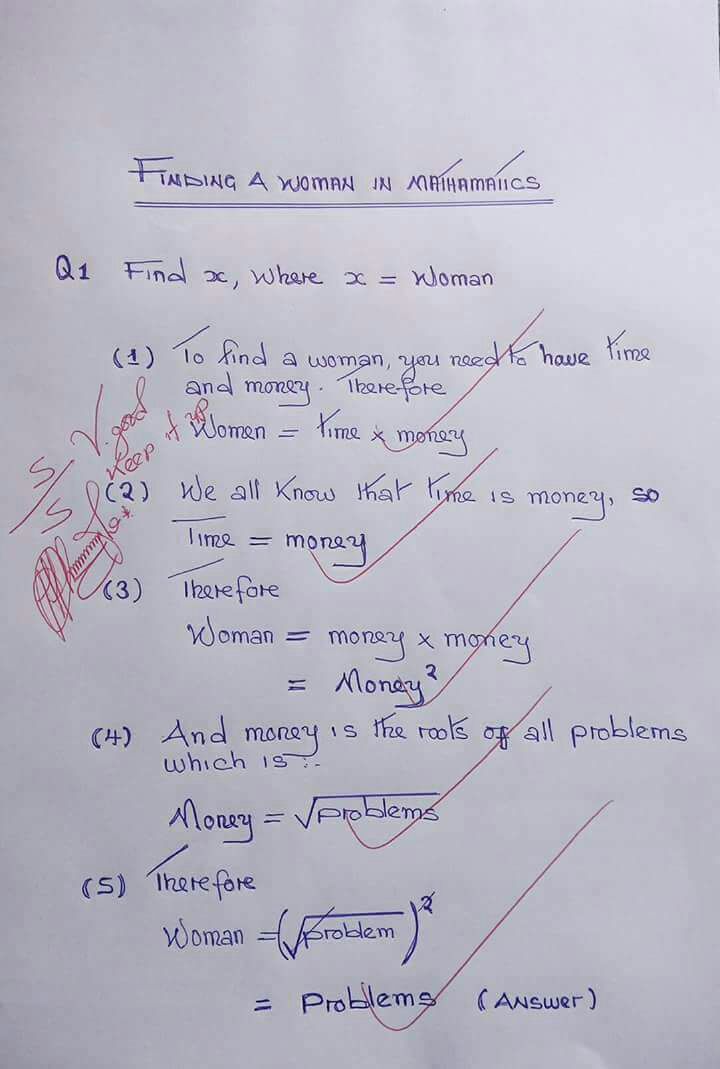 FINDING A WOMAN IN MATHAMATICS
Q1 Find x, Where x = Woman
(1) To find a woman, you need to have time
and money. Therefore
Women = time × money
S/5 V. good
Keep it up
(2) We all know that time is money, so
Time = money
(3) Therefore
Woman = money × money
= Money²
(4) And money is the roots of all problems
which is :-
Money = √problems
(5) Therefore
Woman = (√problem)²
= Problems (Answer)